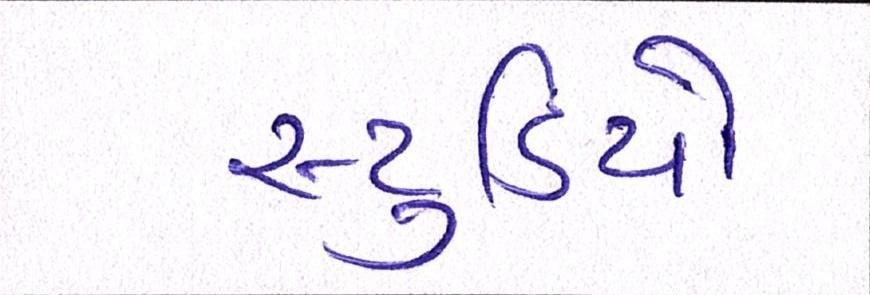 સ્ટુડિયો